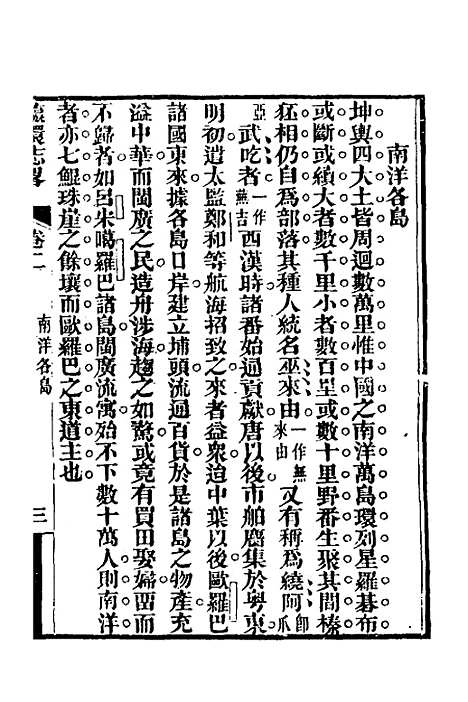 南洋各島
坤輿四大土皆周迴數萬里惟中國之南洋萬島環列星羅碁布
或斷或續大者數千里小者數百里或數十里野番生聚其間榛
狉相仍自爲部落其種人統名巫來由一作無來由又有稱爲繞阿卽爪
亞武吃者一作蕪吉西漢時諸番始通貢獻唐以後市舶麕集於粤東
明初遣太監鄭和等航海招致之來者益衆迨中葉以後歐羅巴
諸國東來據各島口岸建立埔頭流通百貨於是諸島之物產充
溢中華而閩廣之民造舟涉海趨之如鶩或竟有買田娶婦畱而
不歸者如呂宋噶羅巴諸島閩廣流寓殆不下數十萬人則南洋
者亦七鯤珠崖之餘壤而歐羅巴之東道主也
瀛環志畧
卷二
南洋各島
三